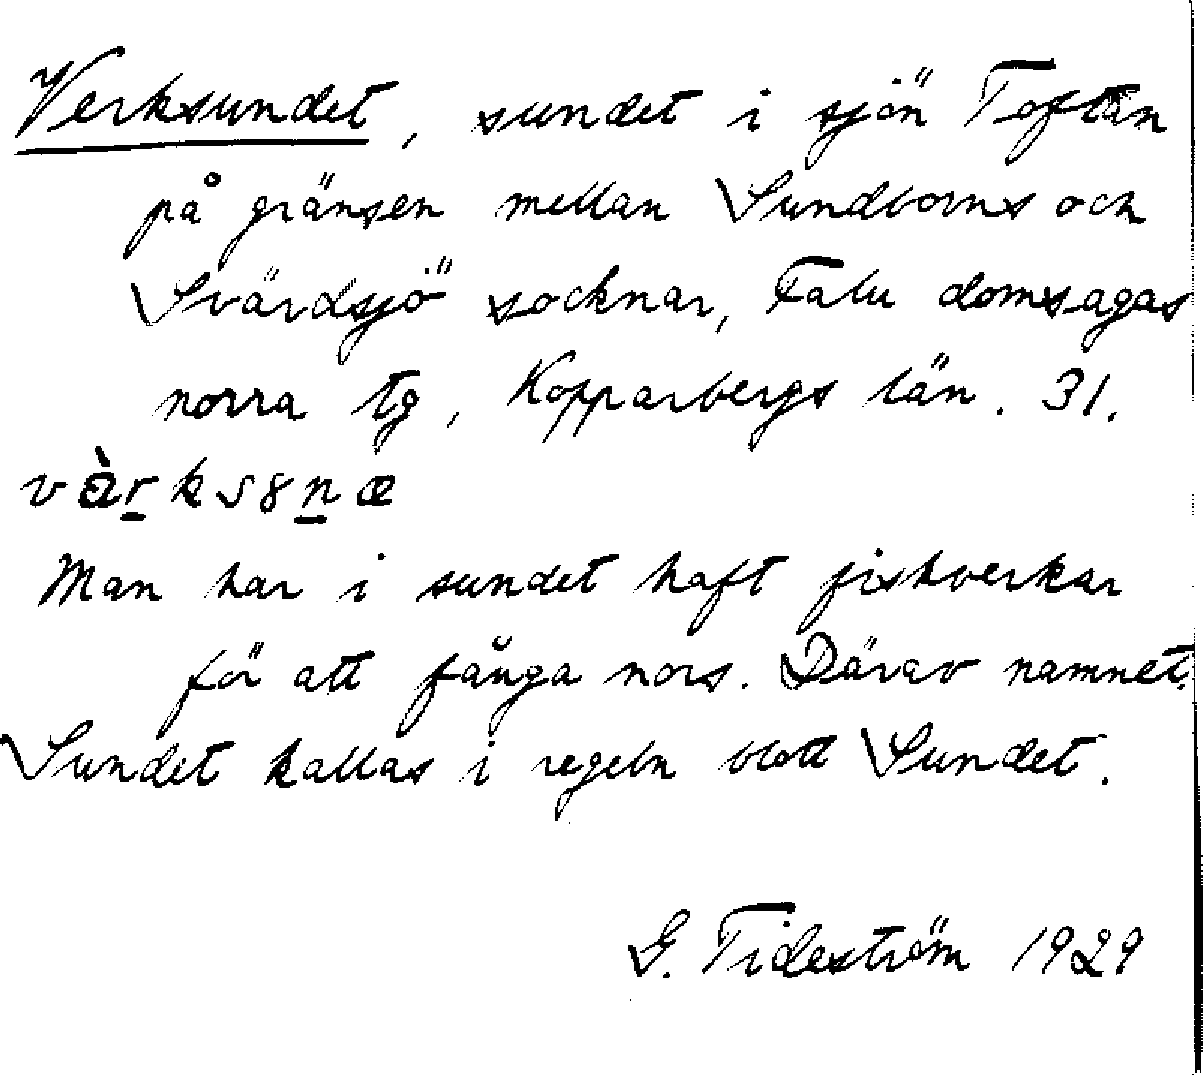 Verksundet, sundet i sjön Toftan
på gränsen mellan Sundborns och
Svärdsjö socknar, Falu domsagas
norra tg, Kopparbergs län. 31.
Man har i sundet haft fiskverkar
för att fånga nors. Därav namnet.
Sundet kallas i regeln blott Sundet.
G. Tideström 1929